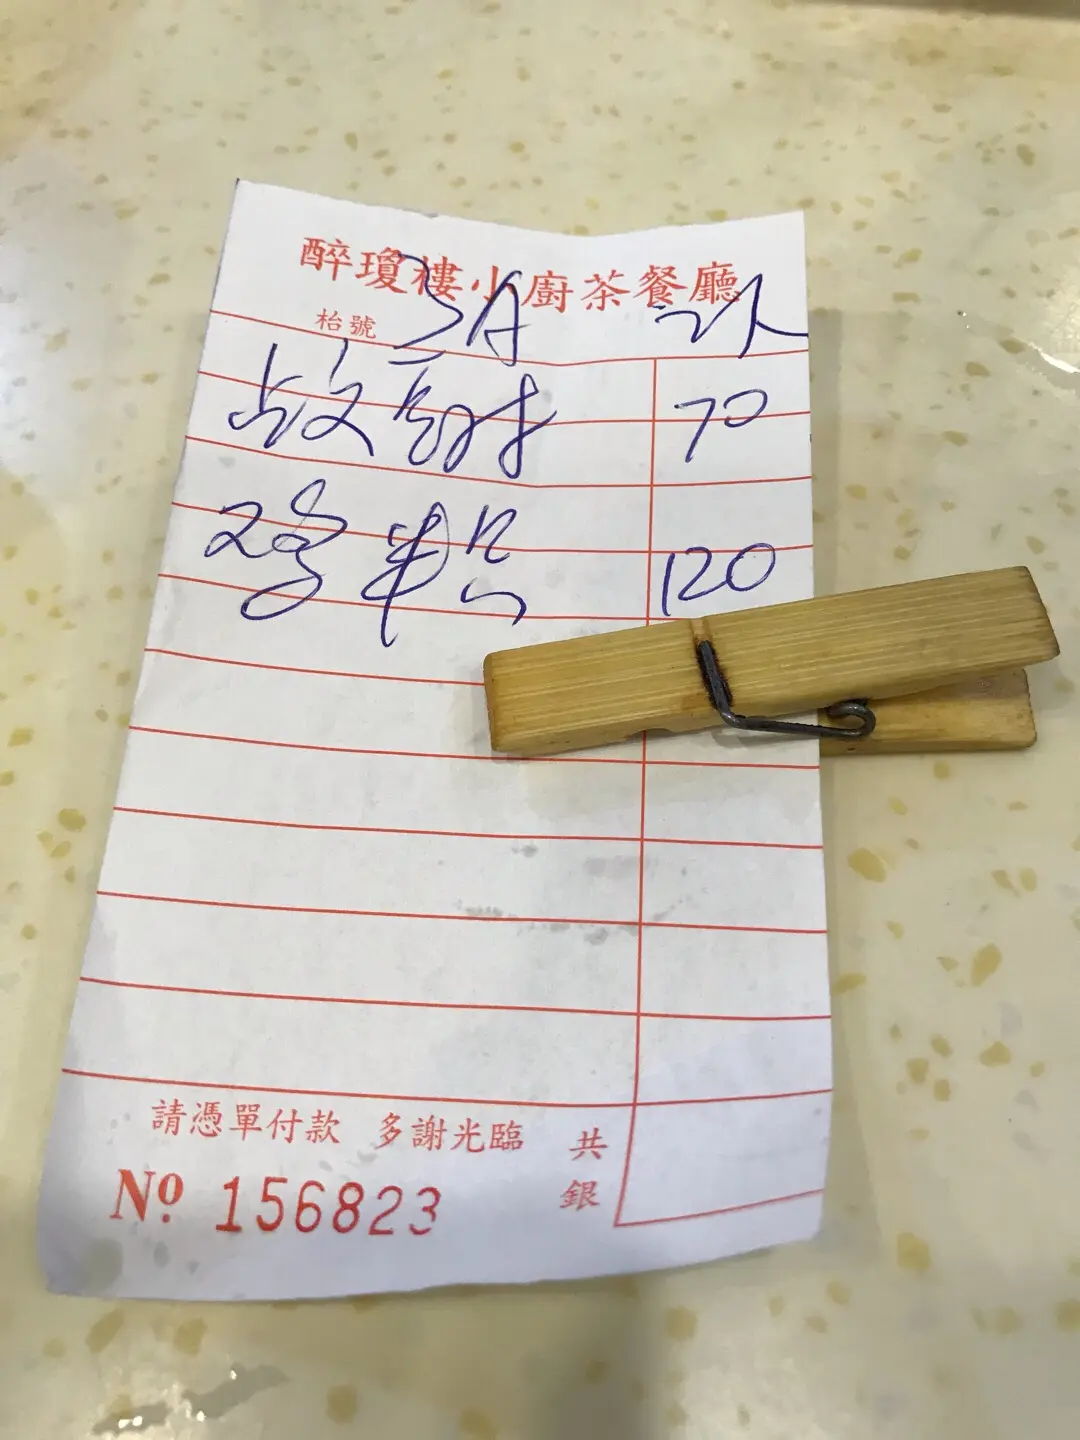 醉瓊樓小廚茶餐廳
枱號 3A 2人
70
120
請憑單付款 多謝光臨 共銀
Nº 156823